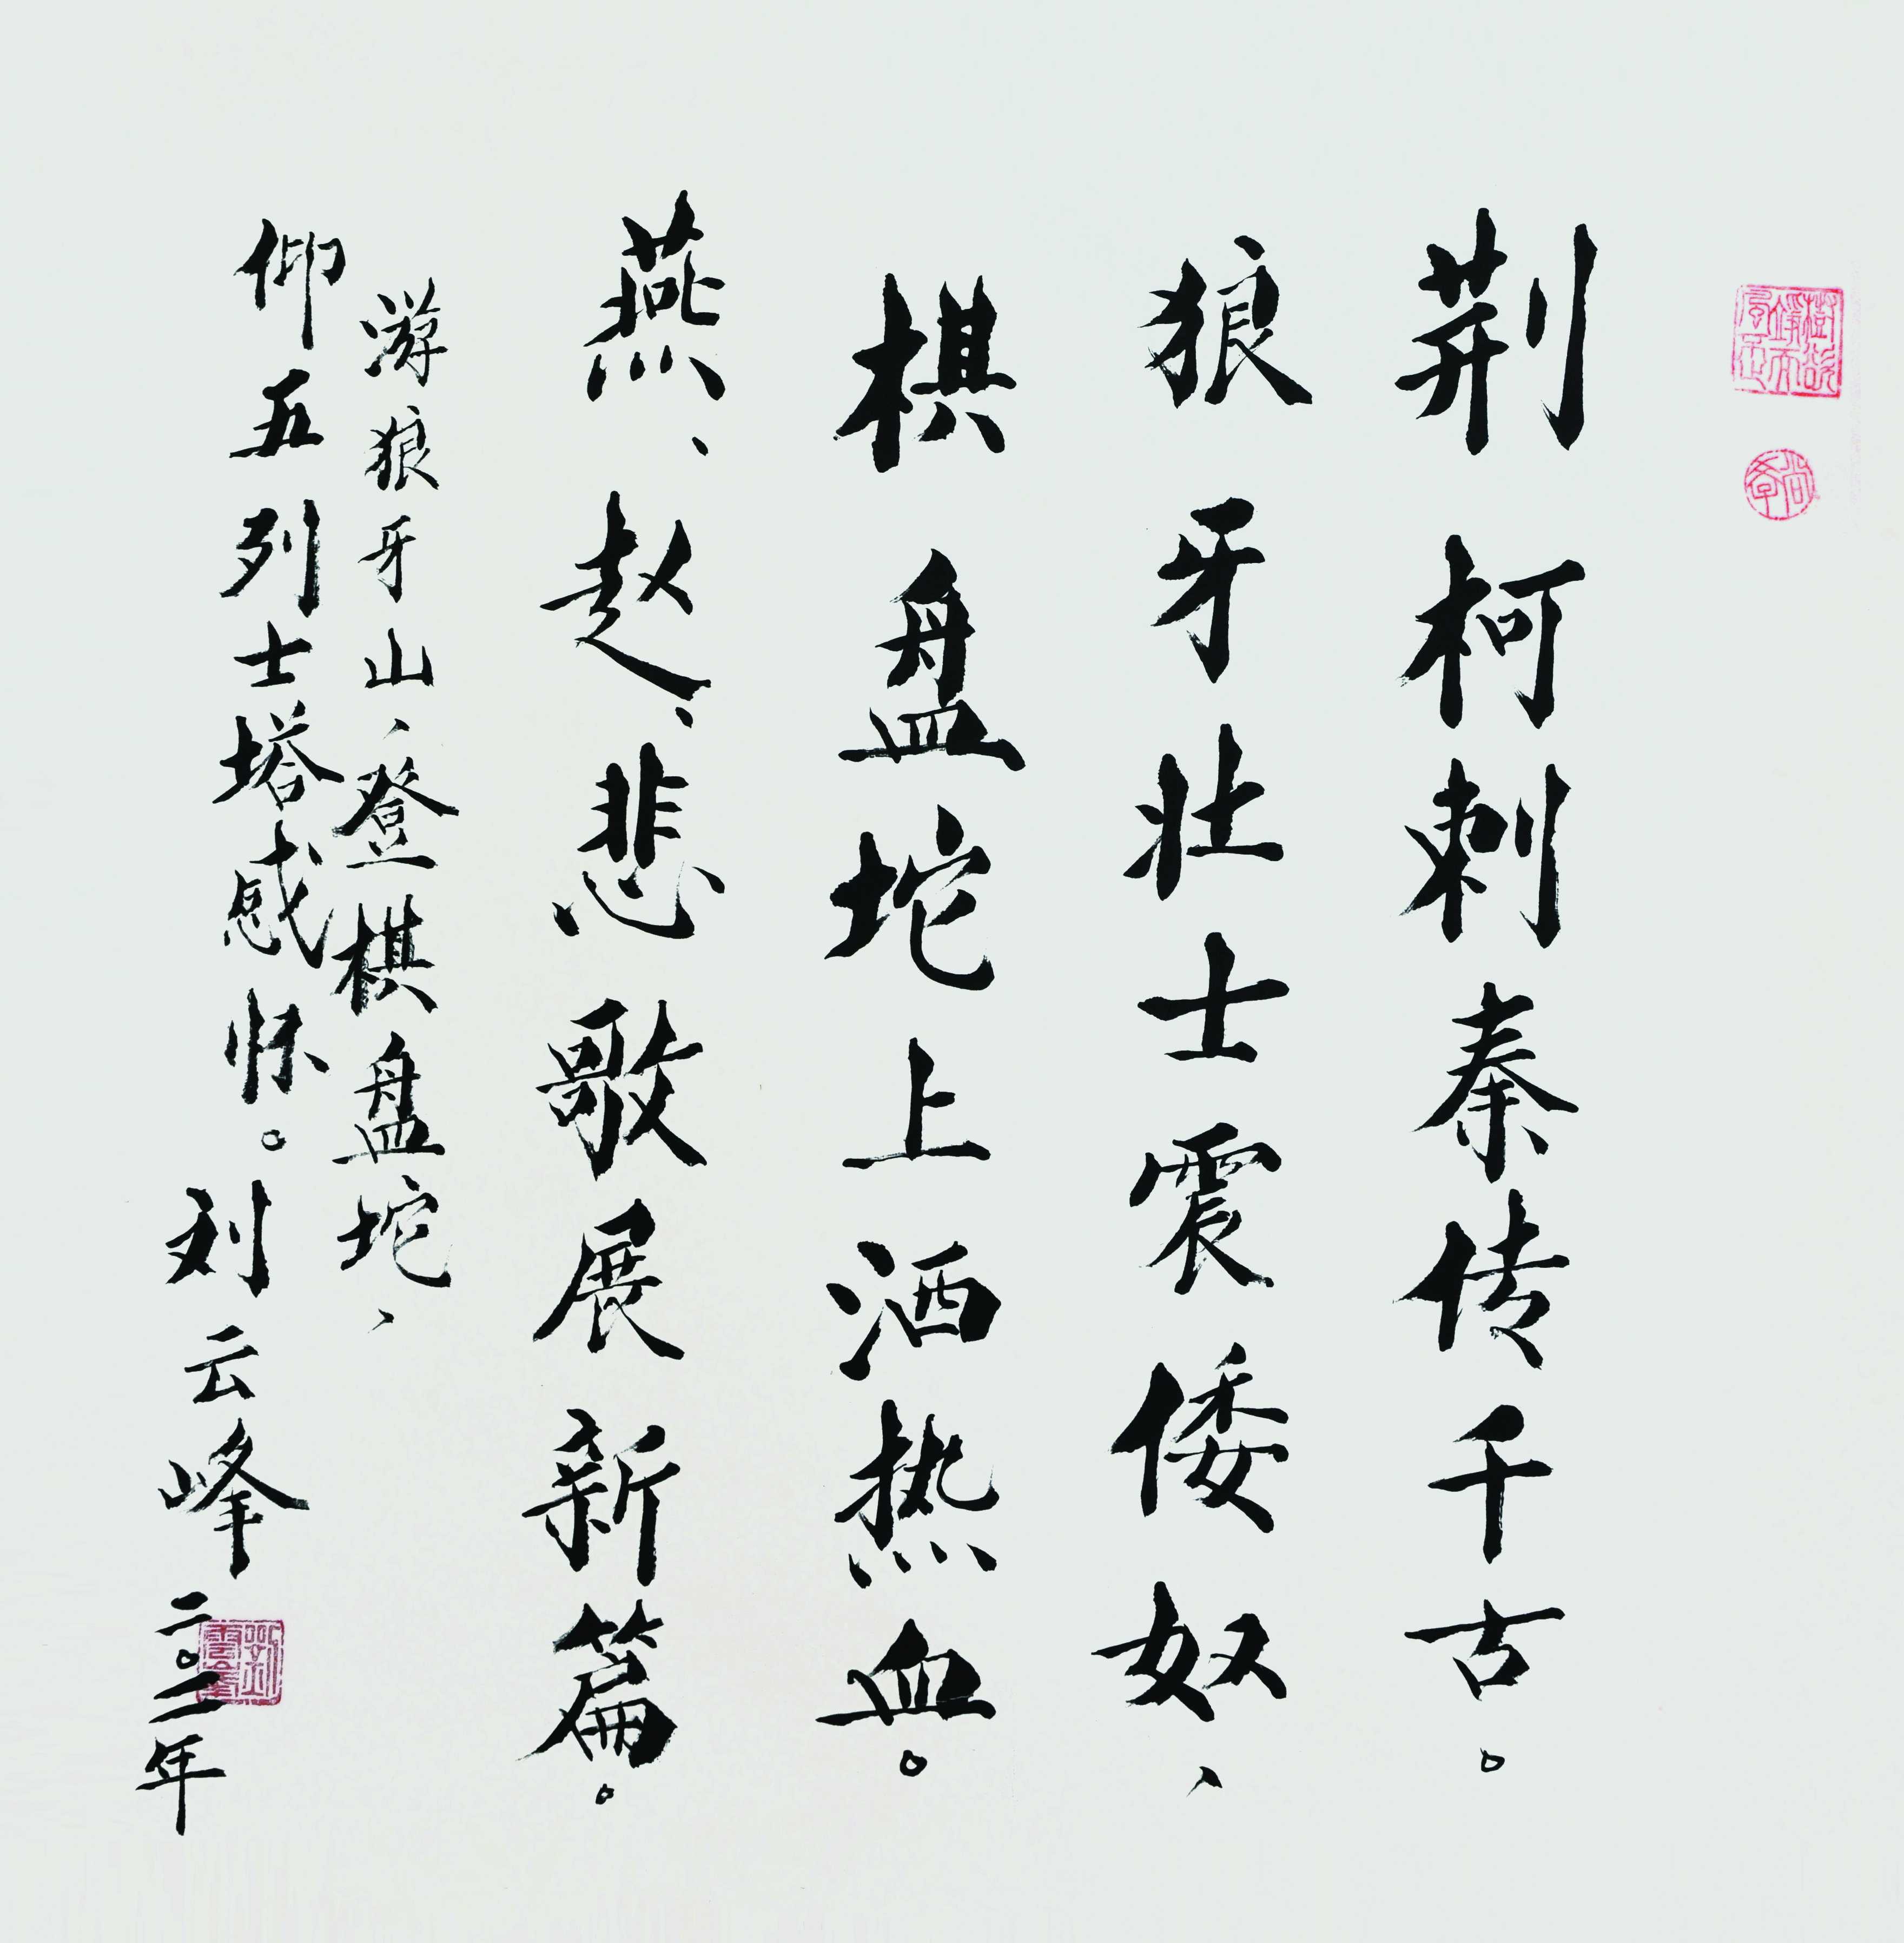 荆柯刺秦传千古。
狼牙壮士震倭奴、
棋盘坨上洒热血。
燕、赵、悲歌展新篇。
游狼牙山、登棋盘坨、
仰五列士塔感怀。刘云峰
二〇二年
刘云峰